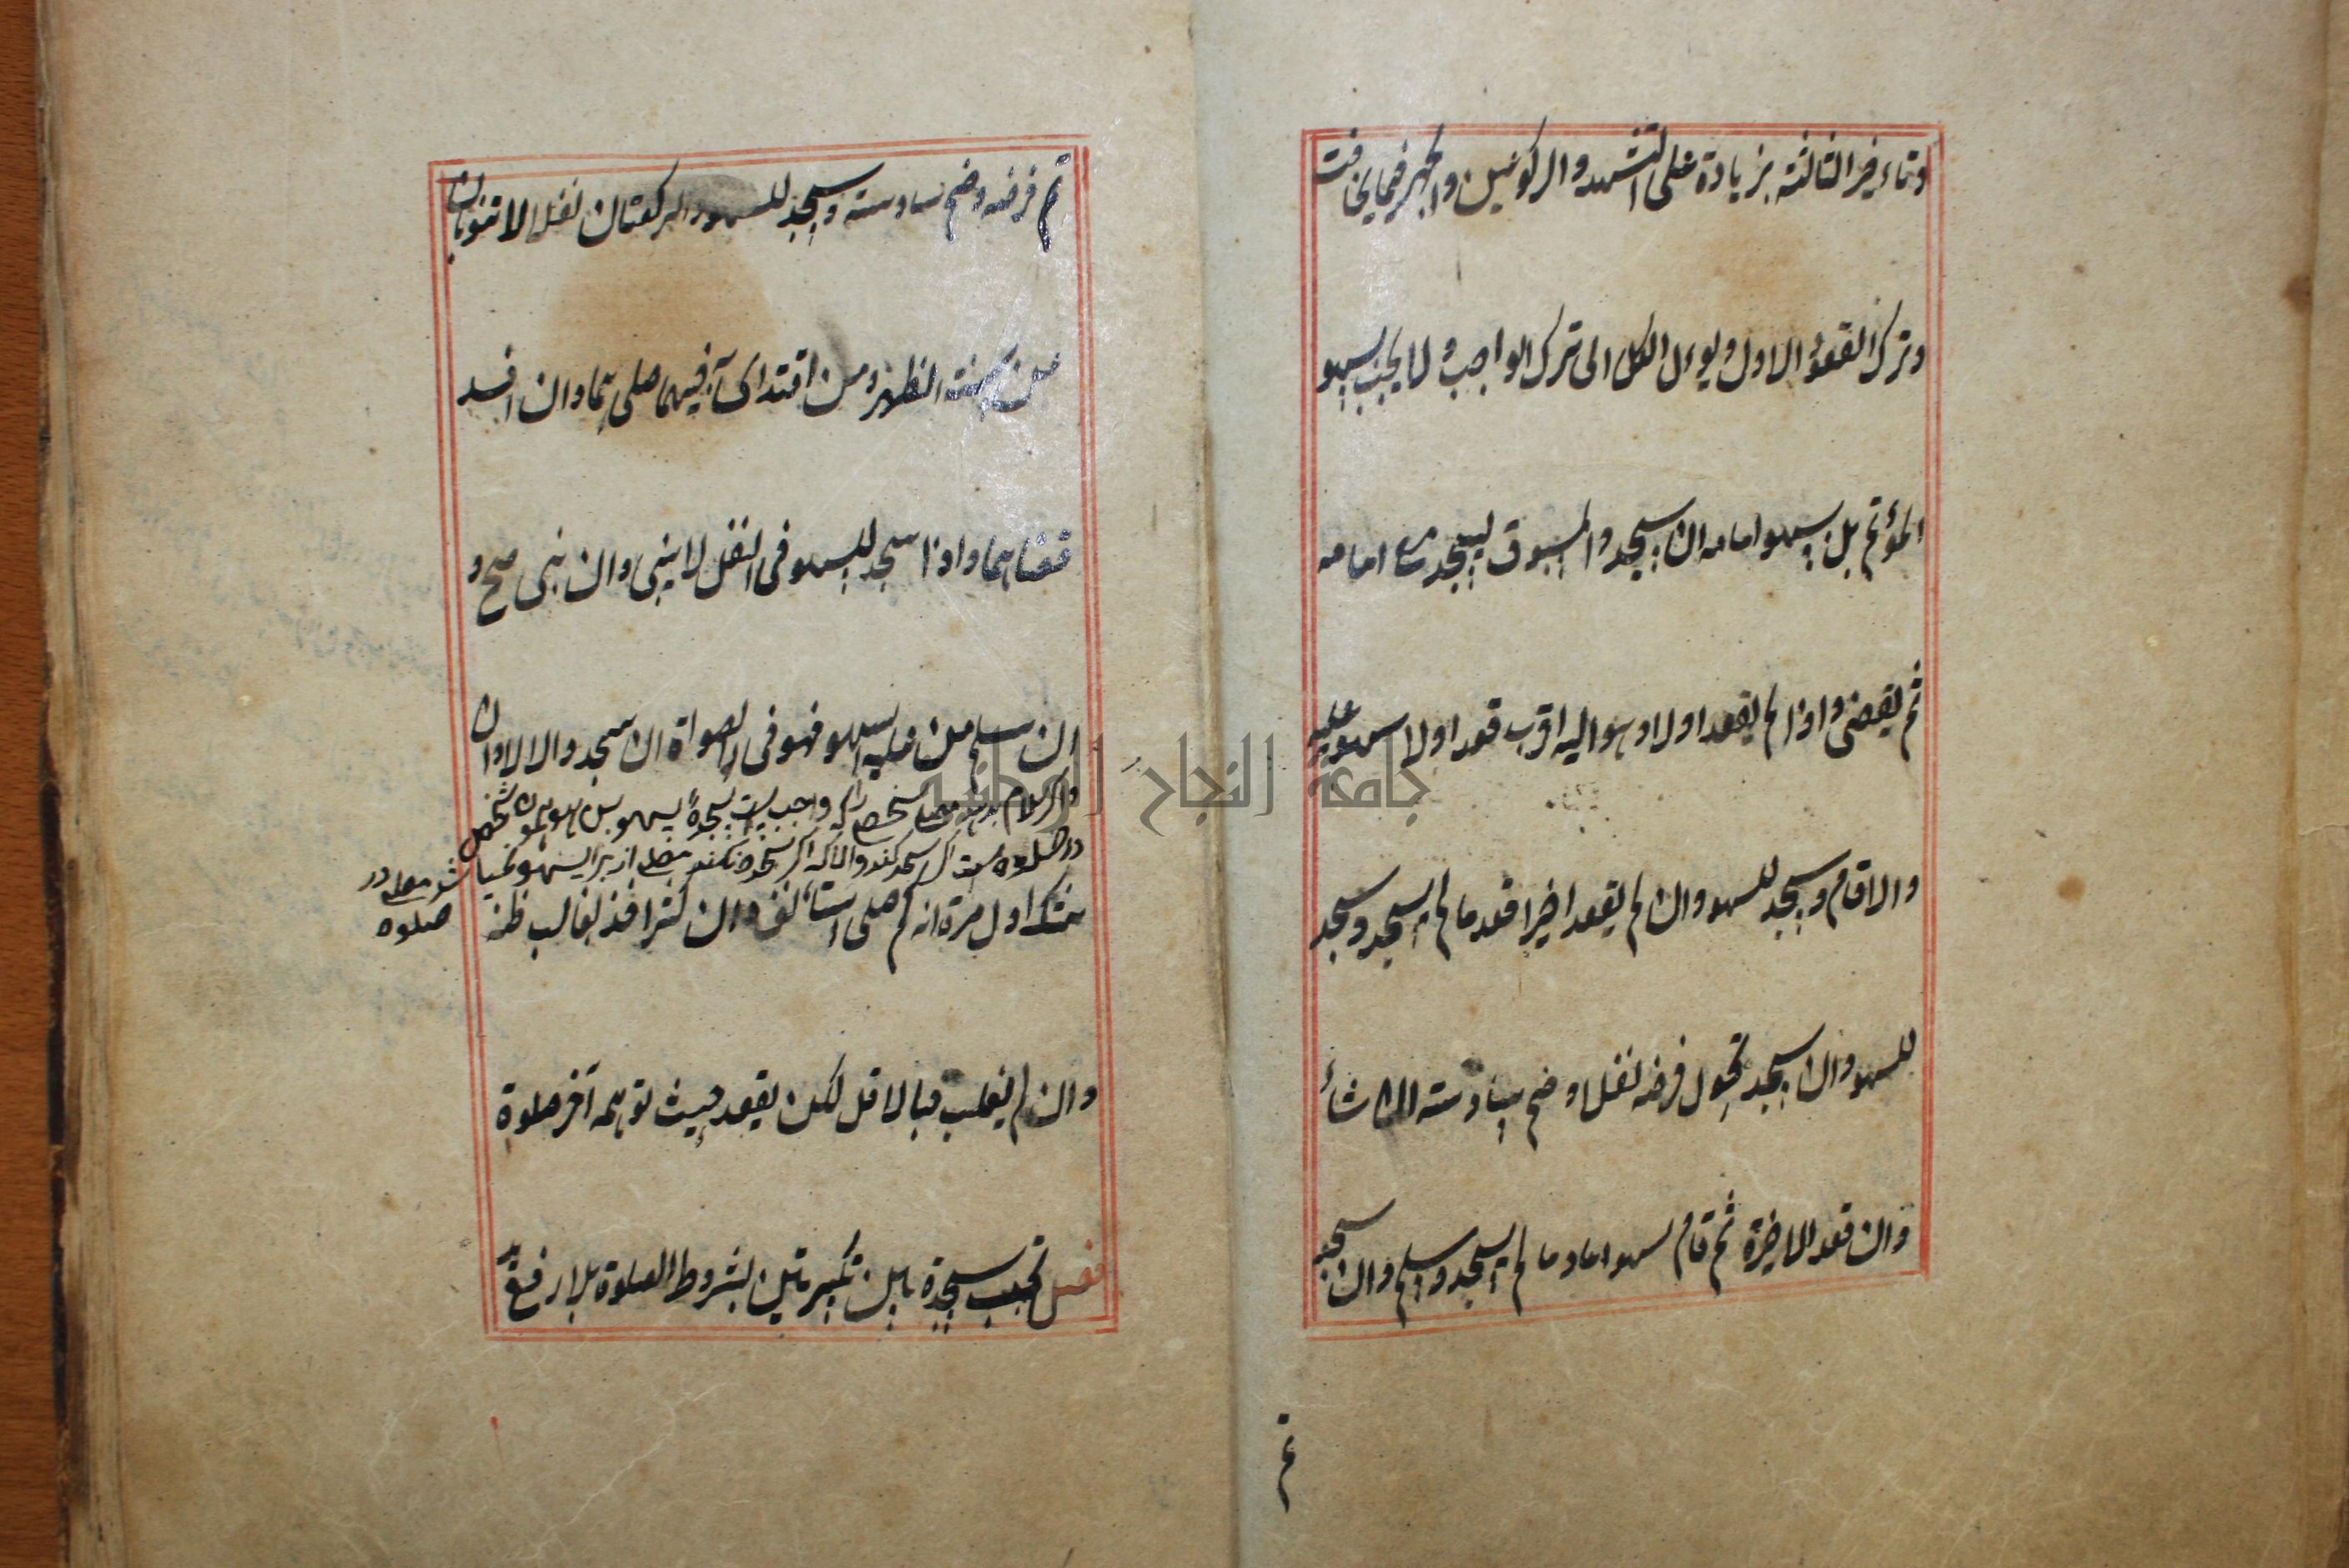 وتاخير الثالثة بزيادة على التشهد والركوعين والجهر فيما يخافت
وترك القعود الاول ويؤل الكل الى ترك الواجب ولا يجب بسهو
المؤتم بل بسهو امامه ان سجد والمسبوق يسجد مع امامه
ثم يقضى واذا لم يقعد اولا وهو اليه اقرب قعد اولا سهو عليه
والا قام ويسجد للسهو وان لم يقعد اخيرا قعد ما لم يسجد وسجد
للسهو وان سجد تحول فرضه نفلا وضم سادسة ان شاء
وان قعد الاخيرة ثم قام سهوا عاد ما لم يسجد وسلم وان سجد
تم
تم فرضه وضم سادسة وسجد للسهو والركعتان نفل لا تنوبان
عن سنة الظهر ومن اقتدى به فيهما صلى هما وان افسد
قضاهما واذا سجد للسهو فى النفل لا يبنى وان بنى صح و
ان سلم من عليه السهو فهو فى الصلواة ان سجد والا لا وان
شك اول مرة انه كم صلى استأنف وان كثر اخذ بغالب ظنه
صلوه
وان لم يغلب فبالاقل لكن يقعد حيث توهمه آخر صلوة
فصل تجب سجدة بين تكبيرتين بشروط الصلوة بلا رفع يد
جامعة النجاح الوطنية